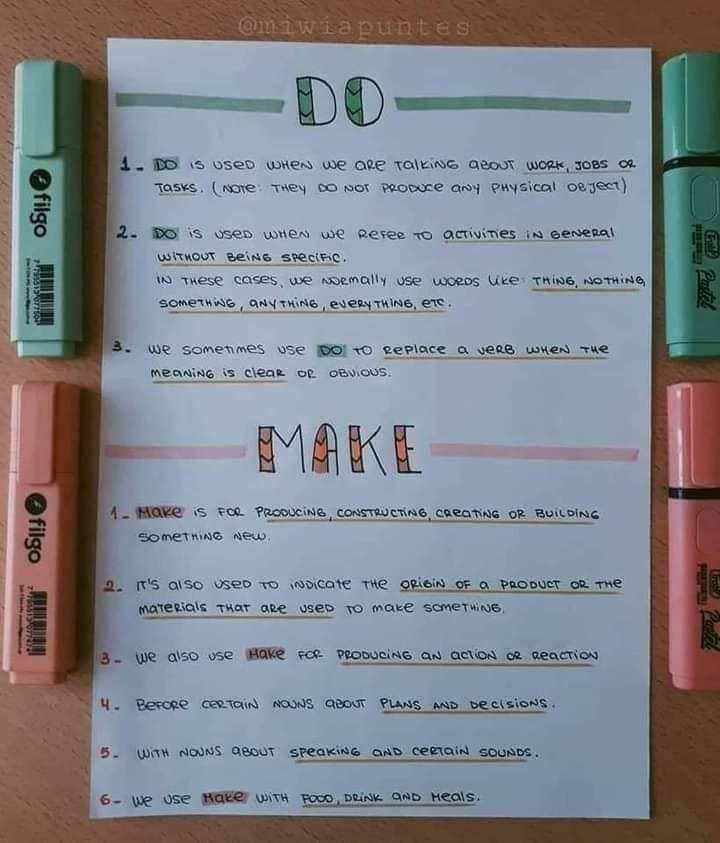 @miwiapuntes
DO
1- DO is used when we are talking about work, jobs or
tasks. (Note: they do not produce any physical object)
2- DO is used when we refer to activities in general
without being specific.
In these cases, we normally use words like: thing, nothing,
something, anything, everything, etc.
3- We sometimes use DO to replace a verb when the
meaning is clear or obvious.
MAKE
1- Make is for producing, constructing, creating or building
something new.
2- It's also used to indicate the origin of a product or the
materials that are used to make something.
3- We also use Make for producing an action or reaction
4- Before certain nouns about plans and decisions.
5- With nouns about speaking and certain sounds.
6- We use Make with food, drink and meals.
filgo
filgo
Pastel